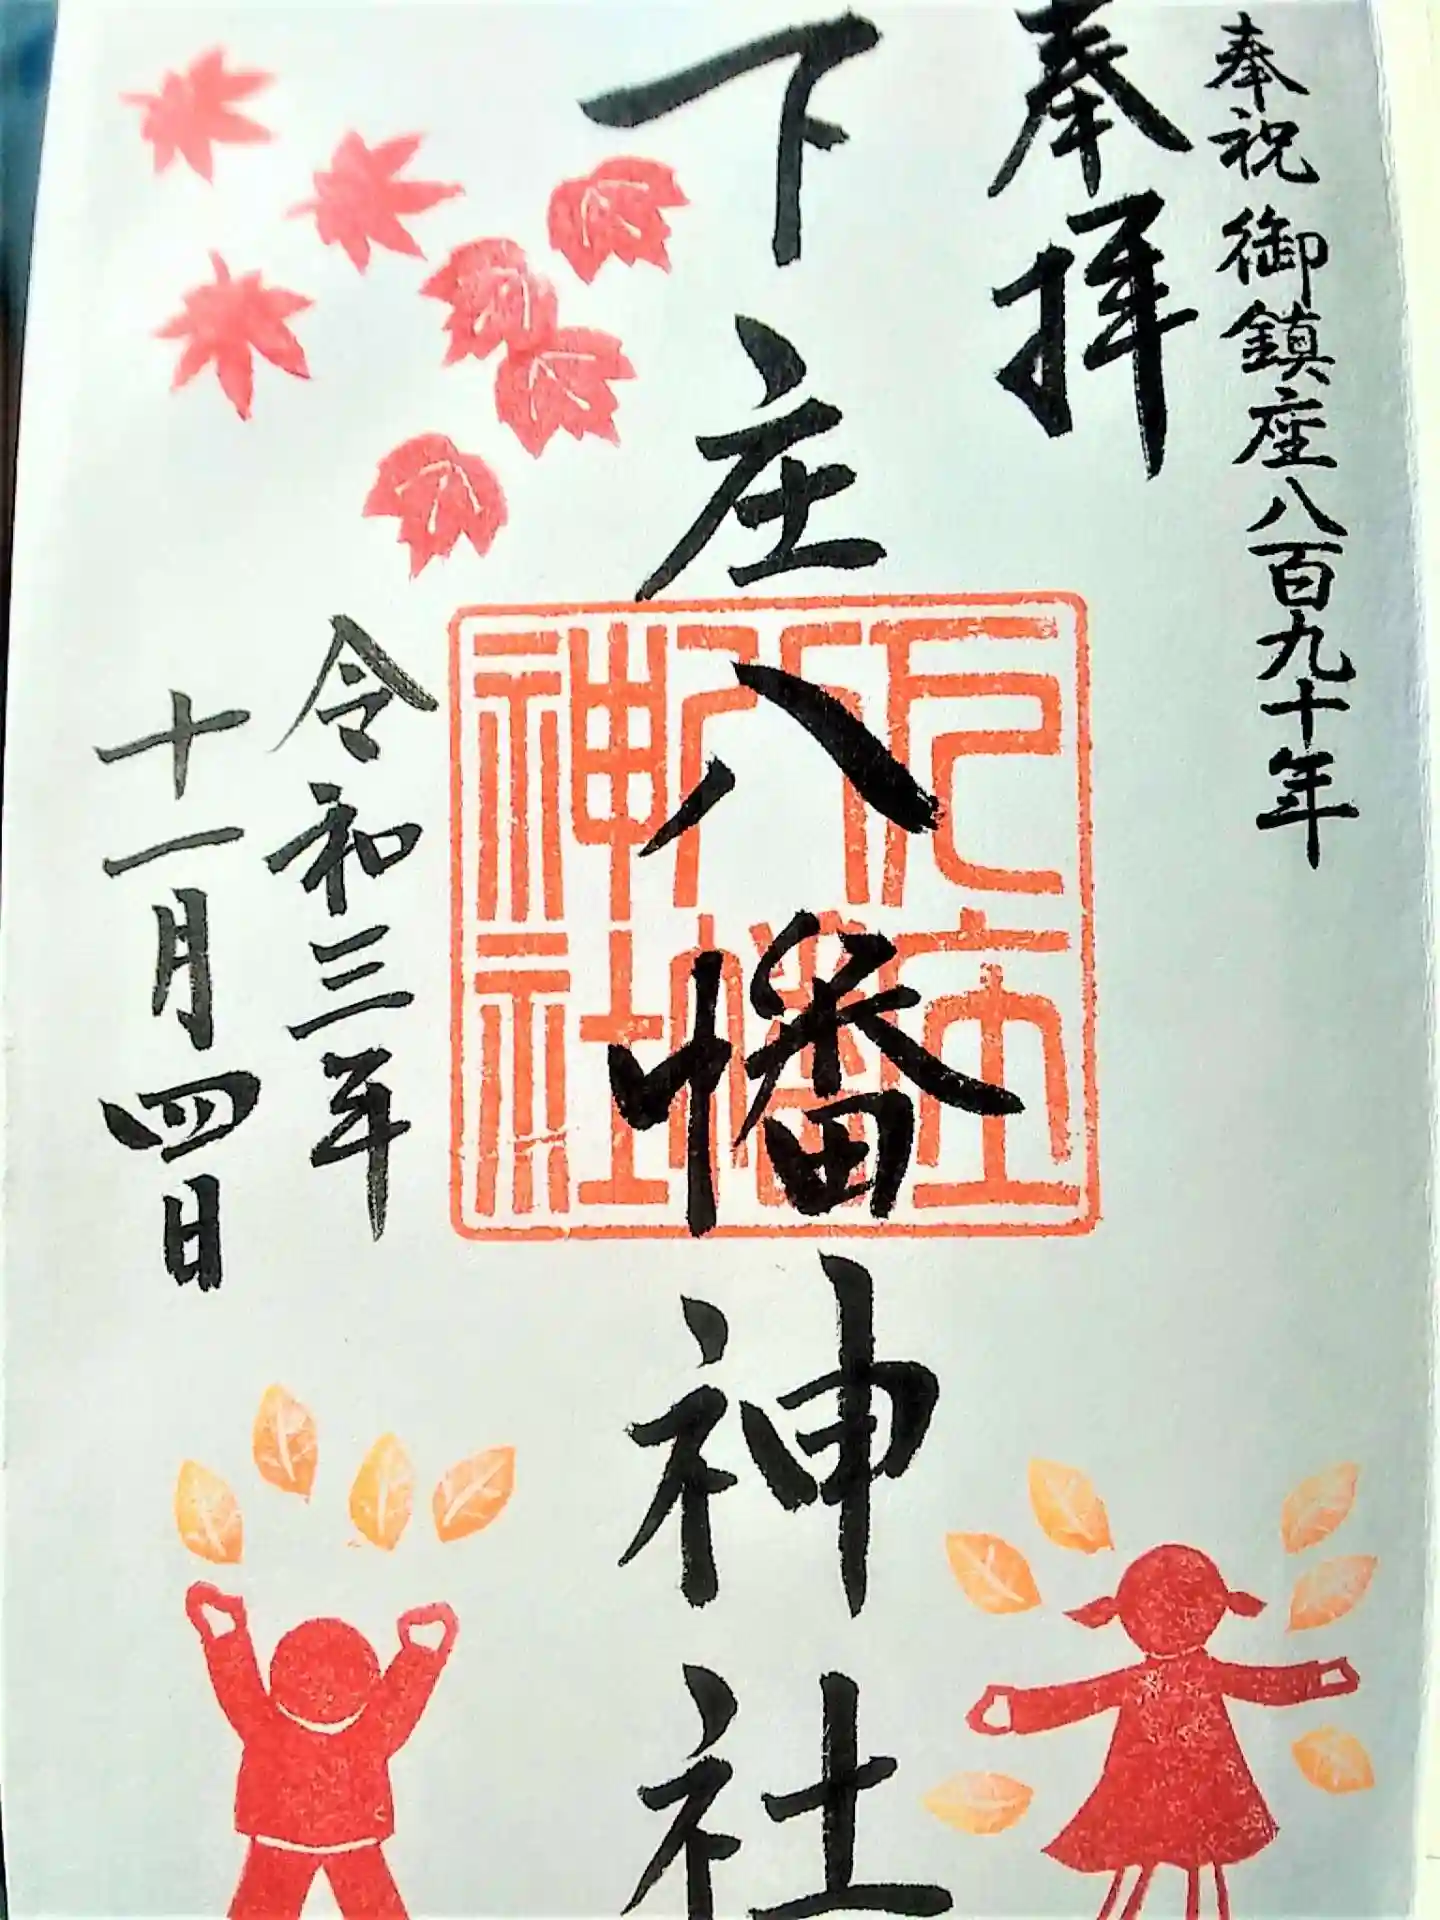 奉祝 御鎮座八百九十年
奉拝
下庄八幡神社
下庄
八幡
神社
令和三年
十一月四日